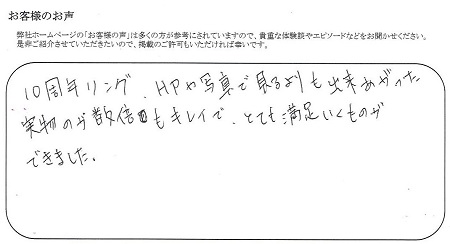 お客様のお声
弊社ホームページの「お客様の声」は多くの方が参考にされていますので、貴重な体験談やエピソードなどをお聞かせください。
是非ご紹介させていただきたいので、掲載のご許可もいただければ幸いです。
10周年リング、HPや写真で見るよりも出来あがった
実物のが数倍もキレイで、とても満足いくものが
できました。